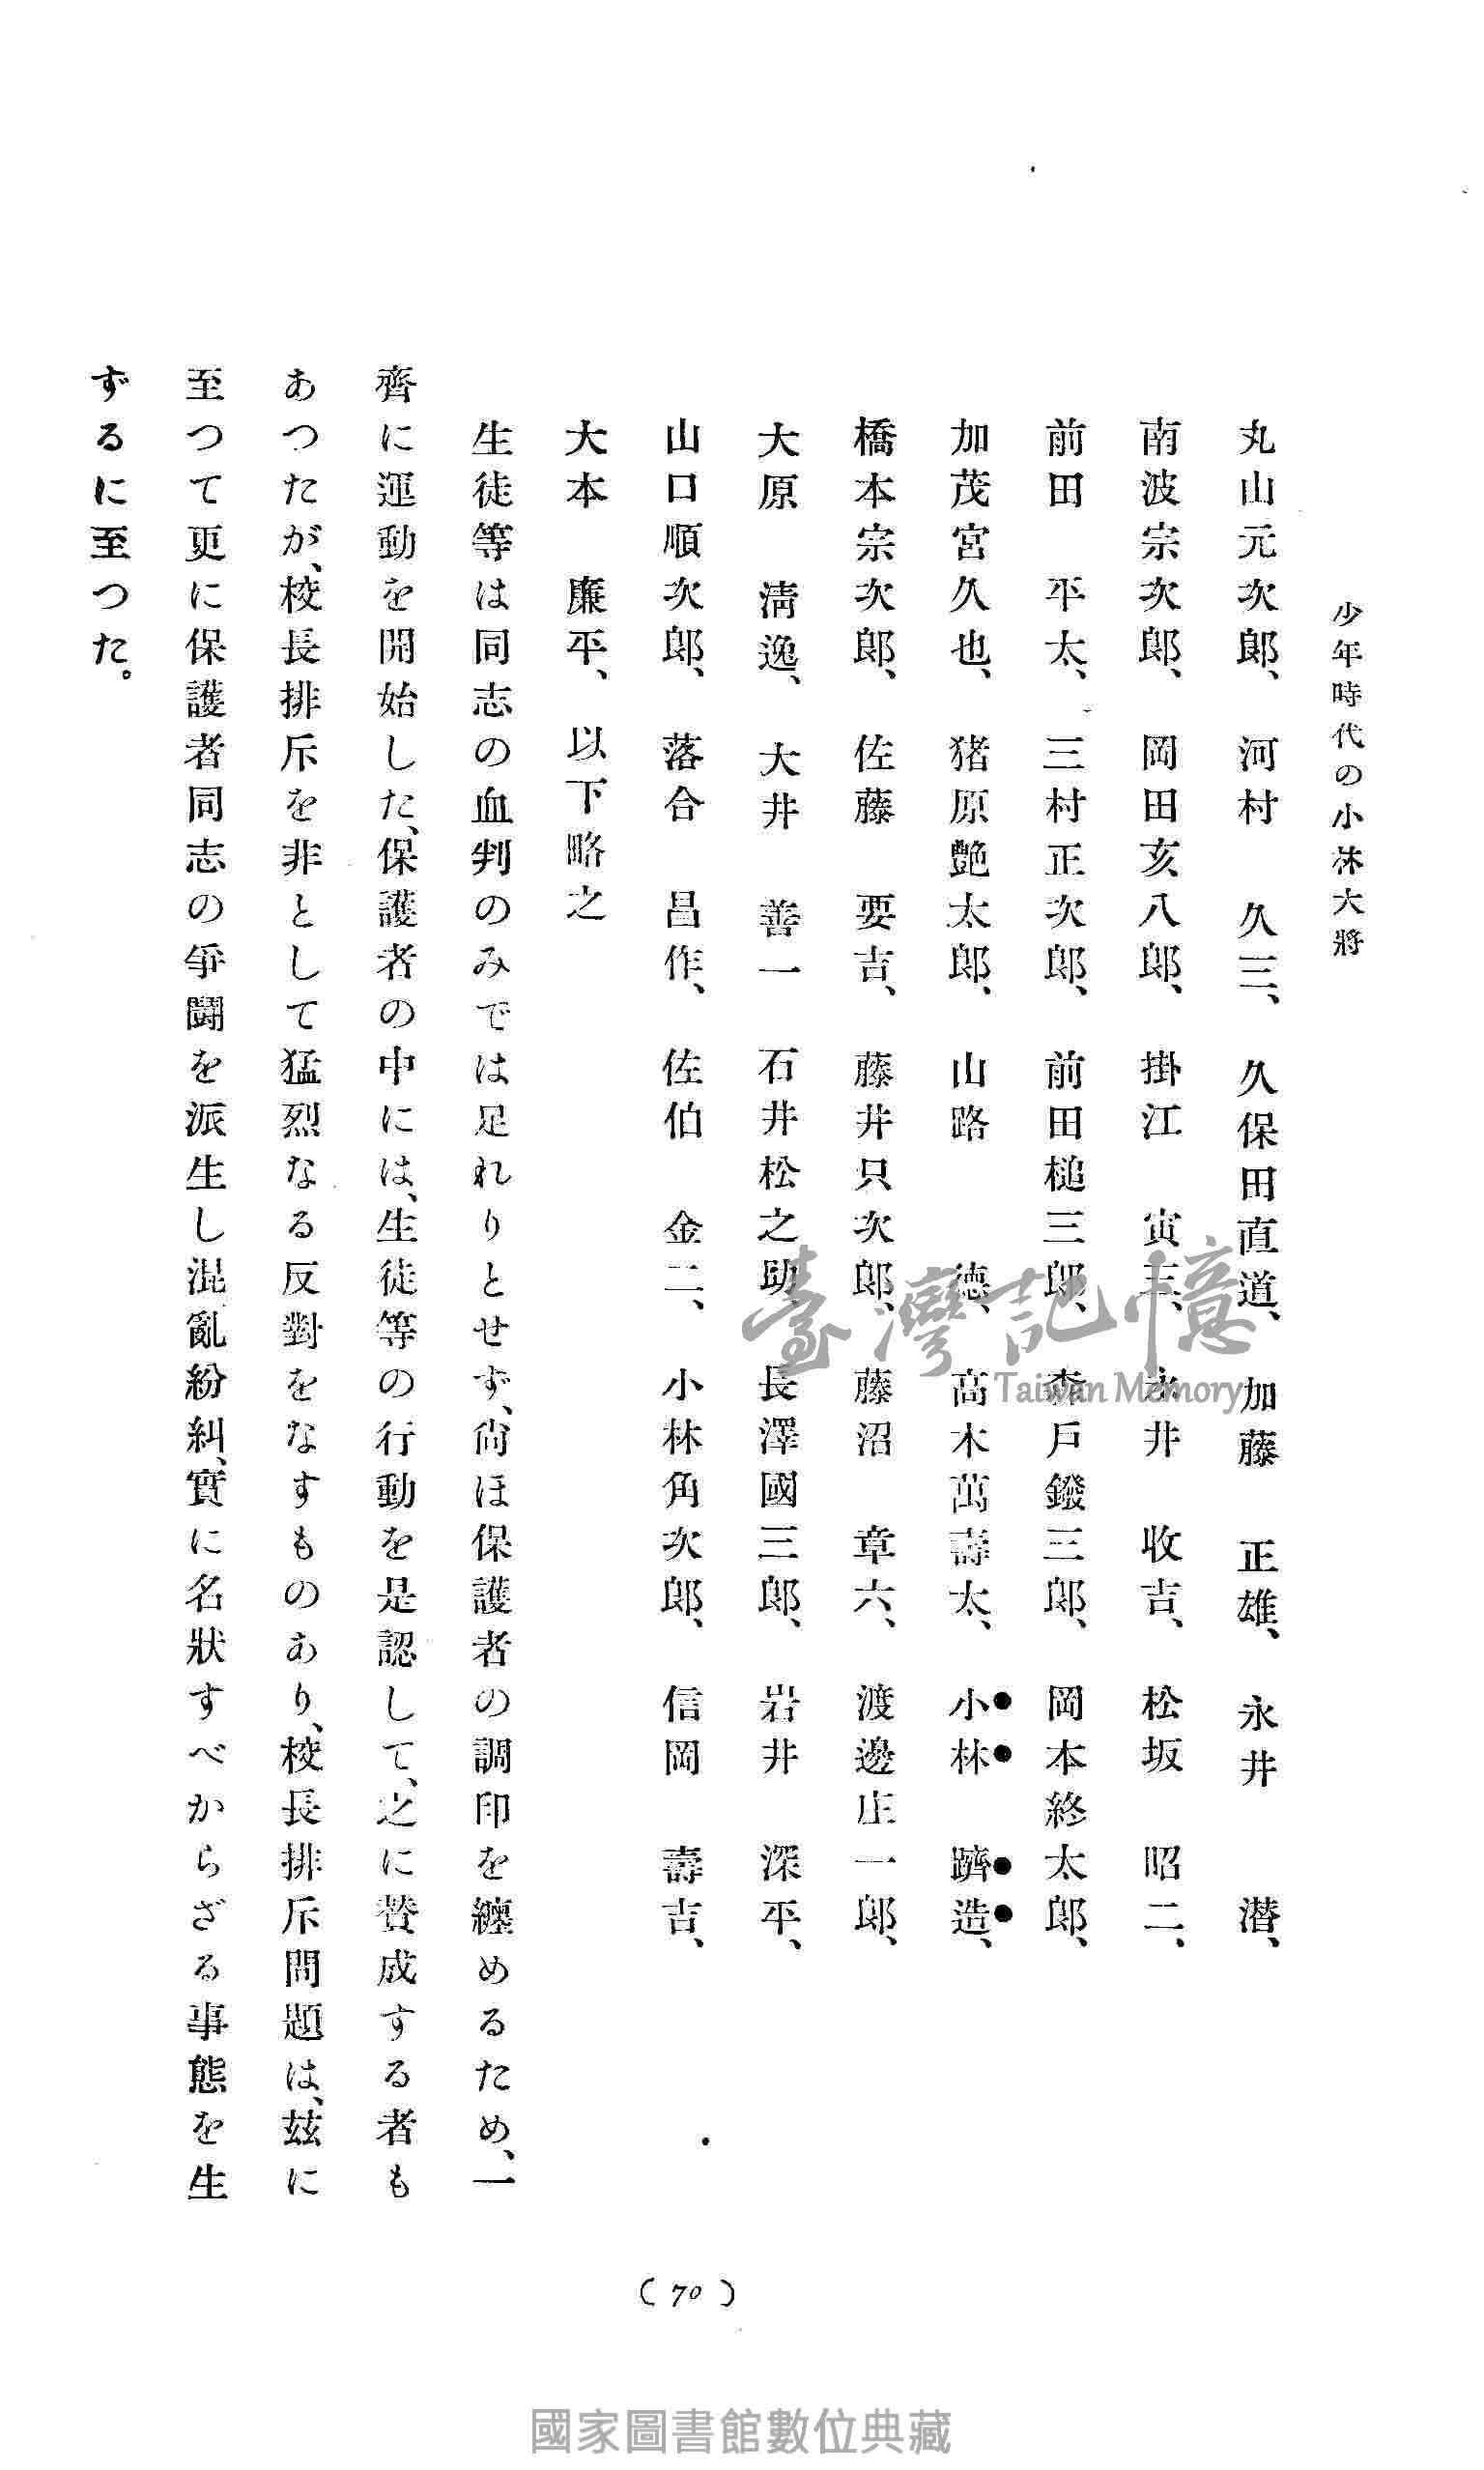 少年時代の小林大將
丸山元次郎、　河村　久三、　久保田直道、　加藤　正雄、　永井　昭　潛、
南波宗次郎、　岡田亥八郎、　掛江　寅三、　永井　收吉、　松坂　昭二、
前田　平太、　三村正次郎、　前田槌三郎、　森戶鐵三郎、　岡本終太郎、
加茂宮久也、　猪原艶太郎、　山路　德、　高木萬壽太、　小林　躋造、
橋本宗次郎、　佐藤　要吉、　藤井只次郎、　藤沼　章六、　渡邊庄一郎、
大原　淸逸、　大井　善一　石井松之助、　長澤國三郎、　岩井　深平、
山口順次郎、　落合　昌作、　佐伯　金二、　小林角次郎、　信岡　壽吉、
大本　廉平、　以下略之
生徒等は同志の血判のみでは足れりとせず、尙ほ保護者の調印を纏めるため、一
齊に運動を開始した、保護者の中には、生徒等の行動を是認して、之に贊成する者も
あつたが、校長排斥を非として猛烈なる反對をなすものあり、校長排斥問題は、玆に
至つて更に保護者同志の爭鬪を派生し混亂紛糾、實に名狀すべからざる事態を生
ずるに至つた。
( 70 )
臺灣記憶
Taiwan Memory
國家圖書館數位典藏